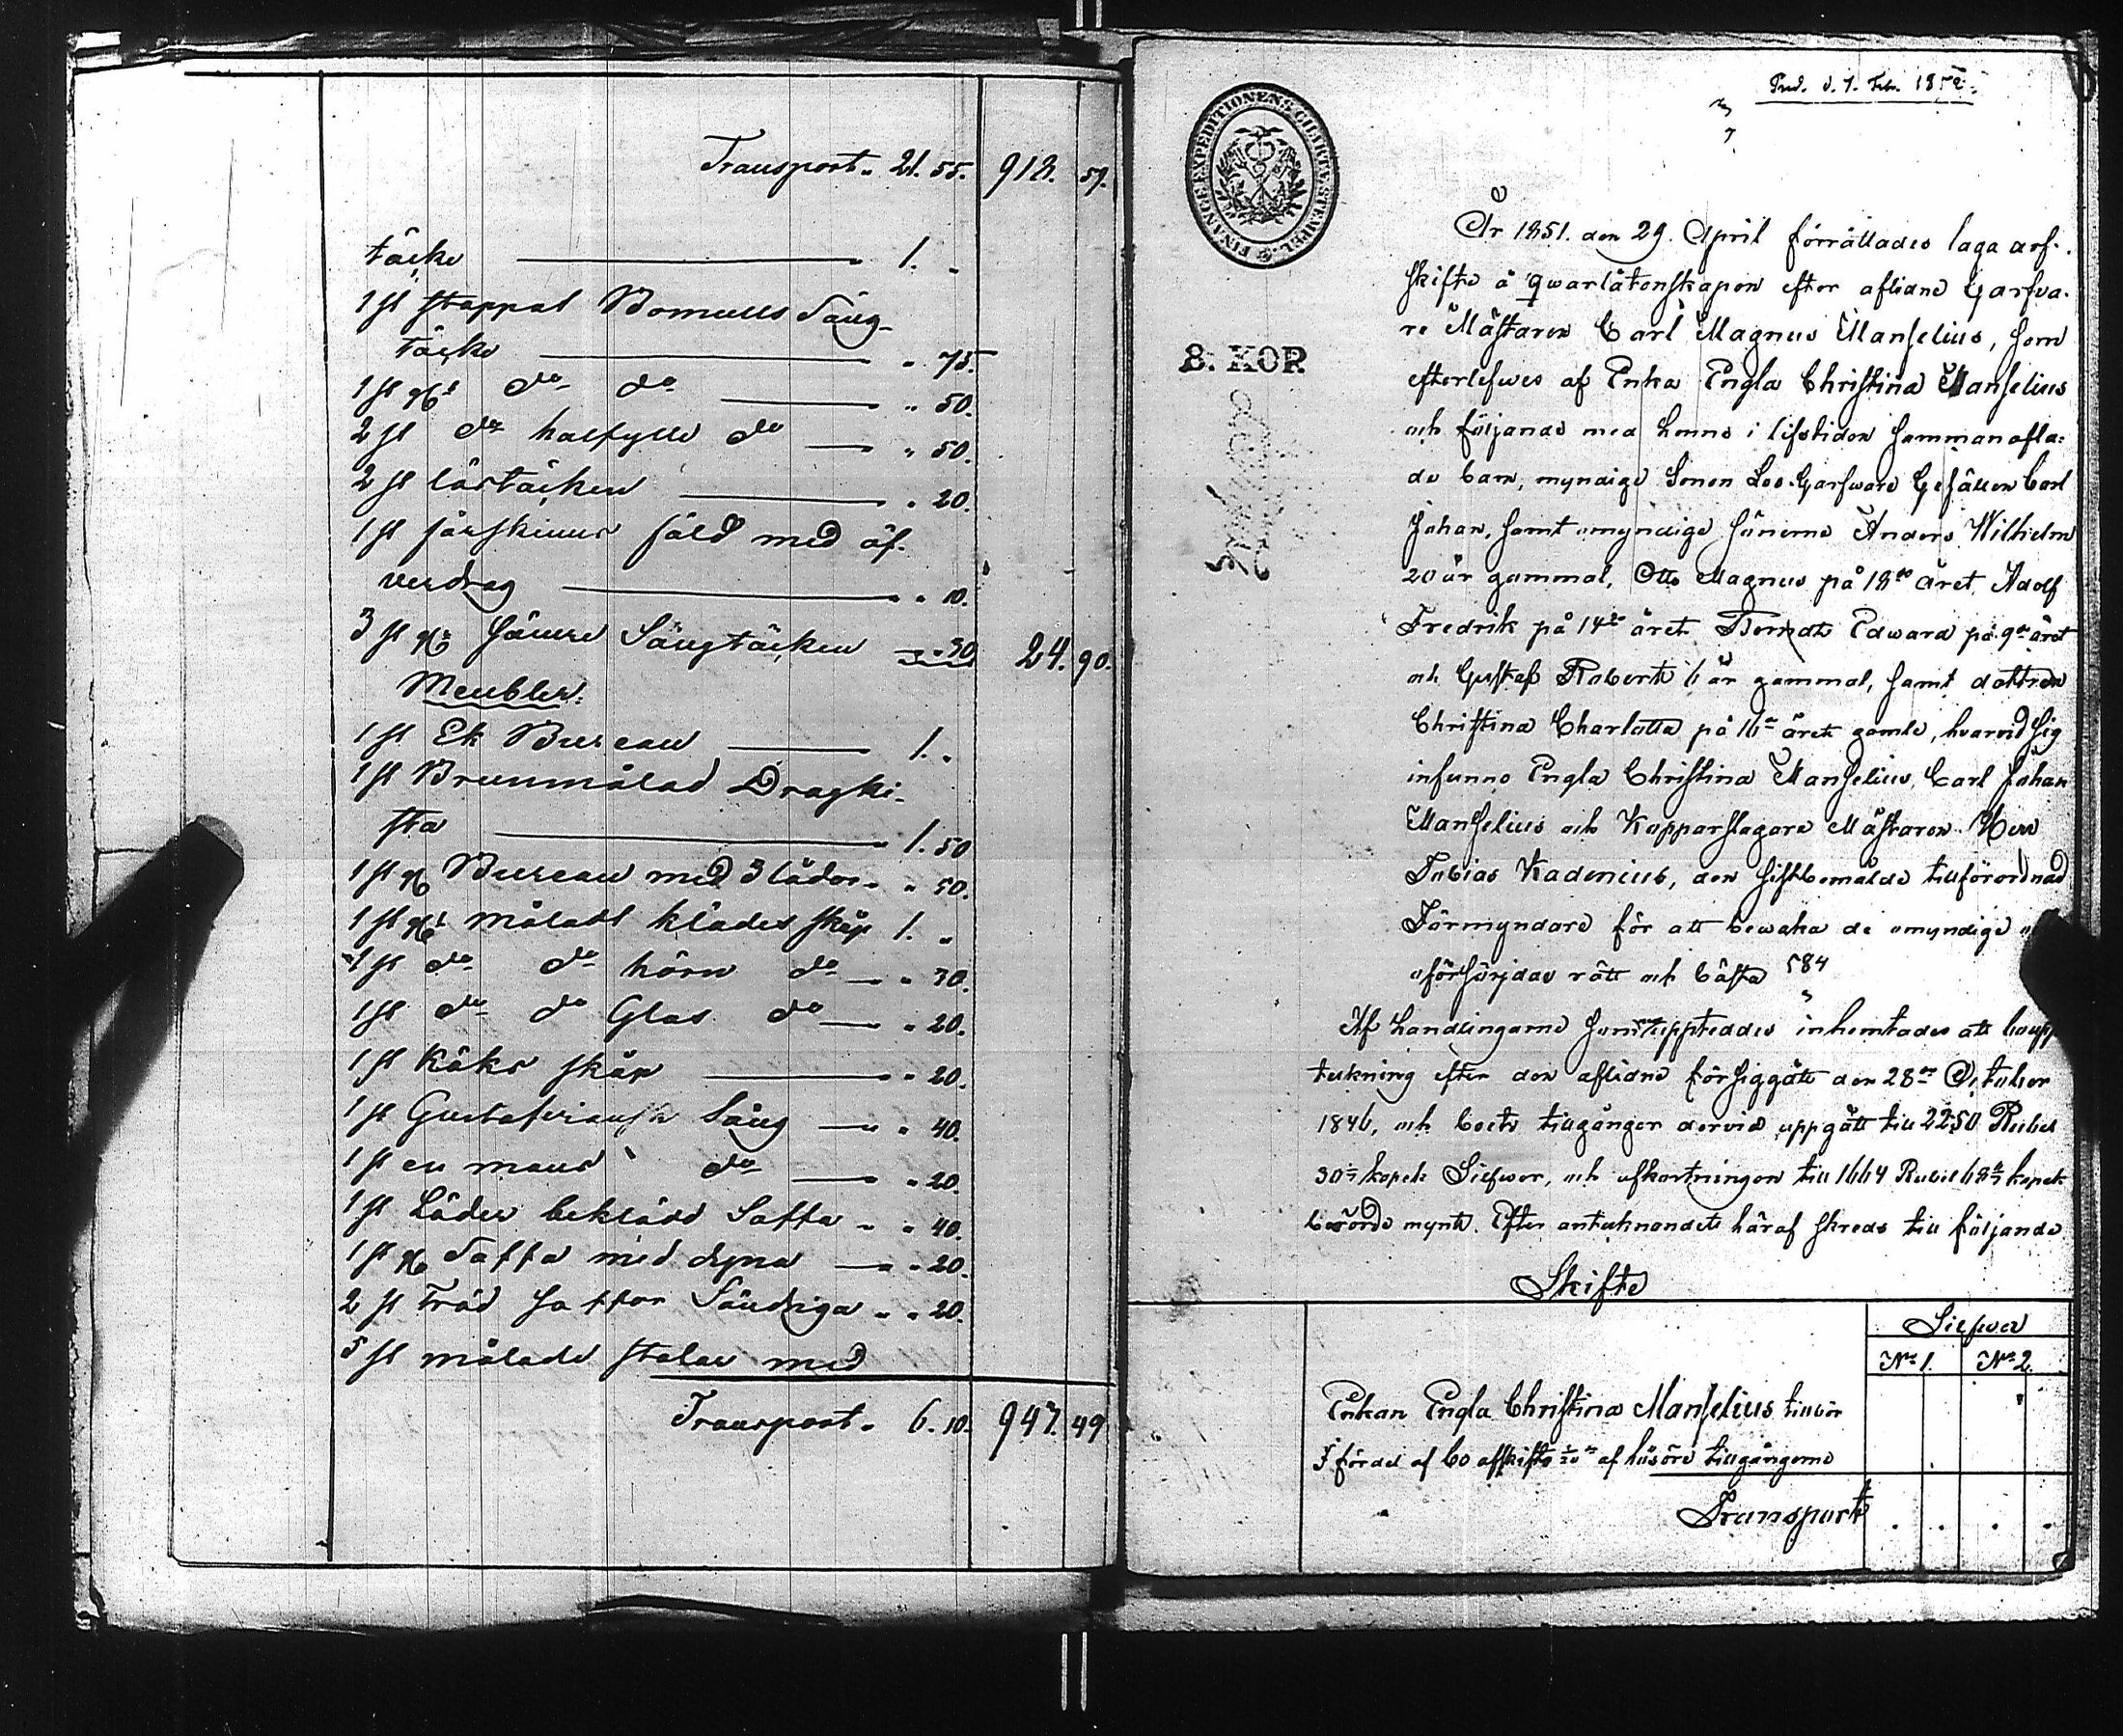 Transport. 21. 55. 918. 59.
täcke 1. "
1 st stappat Bomulls Säng-
täcke " 75.
1 st gt do do " 50.
2 st do halfyllt do " 50.
2 st lärtäcken " 20.
1 st fårskinns fäld med öf-
verdrag " 10.
3 st g Sämre Sängtäcken " 30 24. 90.
Meubler.
1 st Ek Bureau 1. "
1 st Brunmålad Dragki-
sta 1. 50
1 st g Bureau med 3 lådor " 50.
1 st gt måladt klädes skåp 1. "
1 st do do hörn do " 30.
1 st do do Glas do " 20.
1 st Köks skåp " 20.
1 st Gustafviansk Säng " 40.
1 st en mans do " 20.
1 st Läder beklädd Soffa " 40.
1 st g Soffa med dyna " 20.
2 st Träd Soffor Söndriga " 20.
5 st målade stolar med
Transport. 6. 10. 947. 49
Prod. d. 7. Feb. 1852.
FINANCE EXPEDITIONENS CHARTÆ STEMPEL
8. KOP.
År 1851. den 29. April förrättades laga arf-
skifte å qwarlåtenskapen efter aflidne Garfva-
re Mästaren Carl Magnus Manselius, som
efterlefwes af Enka Engla Christina Manselius
och följande med henne i lifstiden sammanafla-
de barn, myndige Sonen Loo-Garfware Gesällen Carl
Johan, samt omyndige sönerne Anders Wilhelm
20 år gammal, Otto Magnus på 18de året, Adolf
Fredrik på 14de året, Berndt Edward på 9de året
och Gustaf Robert 6 år gammal, samt dottren
Christina Charlotta på 16de året gamle, hvarvid sig
infunno Engla Christina Manselius, Carl Johan
Manselius och Kopparslagare Mästaren Herr
Tobias Kadenius, den sistbemälde tillförordnad
Förmyndare för att bewaka de omyndige
oförsörjdas rätt och bästa 584
Af Handlingarne som uppteddes inhemtades att boupp-
teckning efter den aflidne försiggått den 28de October
1846, och boets tillgångar dervid uppgått till 2250 Rubel
30 2/7 kopek Silfwer, och afkortningen till 1664 Rubel 68 4/7 kopek
berörde mynt. Efter antecknandet häraf skreds till följande
Skifte
Silfwer
No 1. No 2.
Enkan Engla Christina Manselius tillbör
I fördel af bo afskifte 1/20 af lösöre tillgångarne
Transport